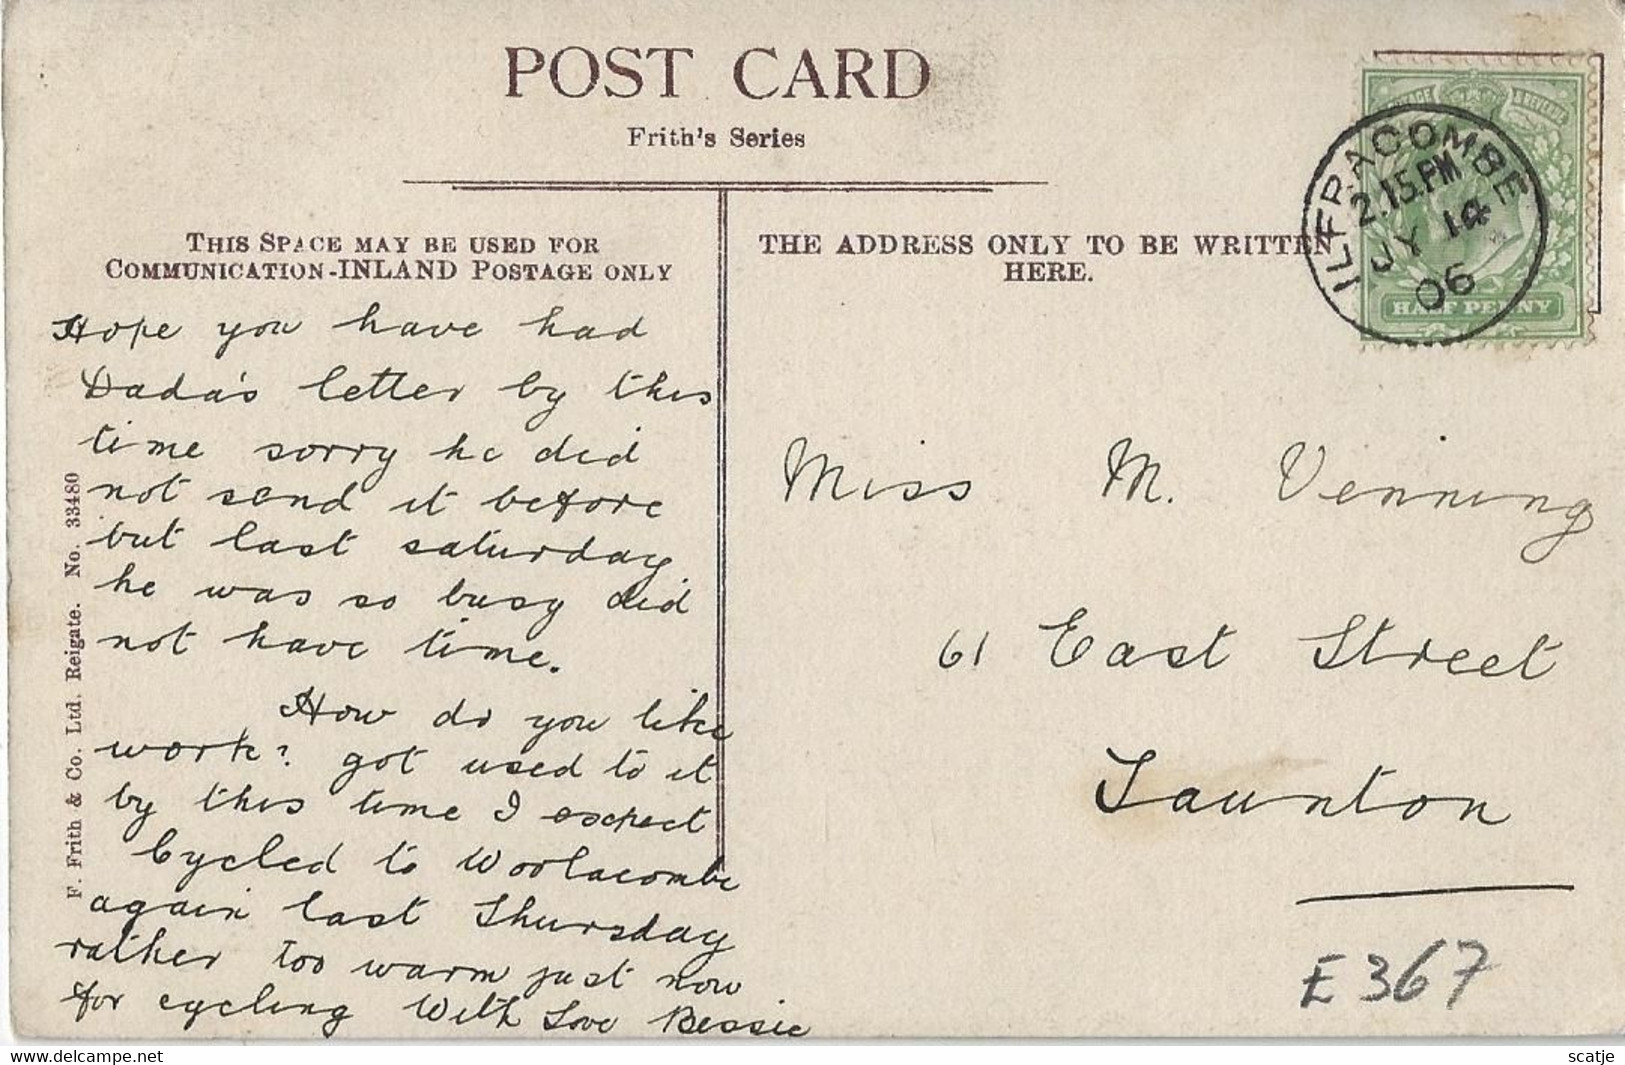 POST CARD
Frith's Series
THIS SPACE MAY BE USED FOR
COMMUNICATION-INLAND POSTAGE ONLY
THE ADDRESS ONLY TO BE WRITTEN
HERE.
ILFRACOMBE
2.15.PM
JY 14
06
HALF PENNY
Hope you have had
Dada's letter by this
time sorry he did
not send it before
but last saturday
he was so busy did
not have time.
How do you like
work? got used to it
by this time I expect
Cycled to Woolacombe
again last Thursday
rather too warm just now
for cycling With Love Bessie
Miss M. Venning
61 East Street
Taunton
E367
F. Frith & Co. Ltd. Reigate. No. 33480
delcampe.net
scatje